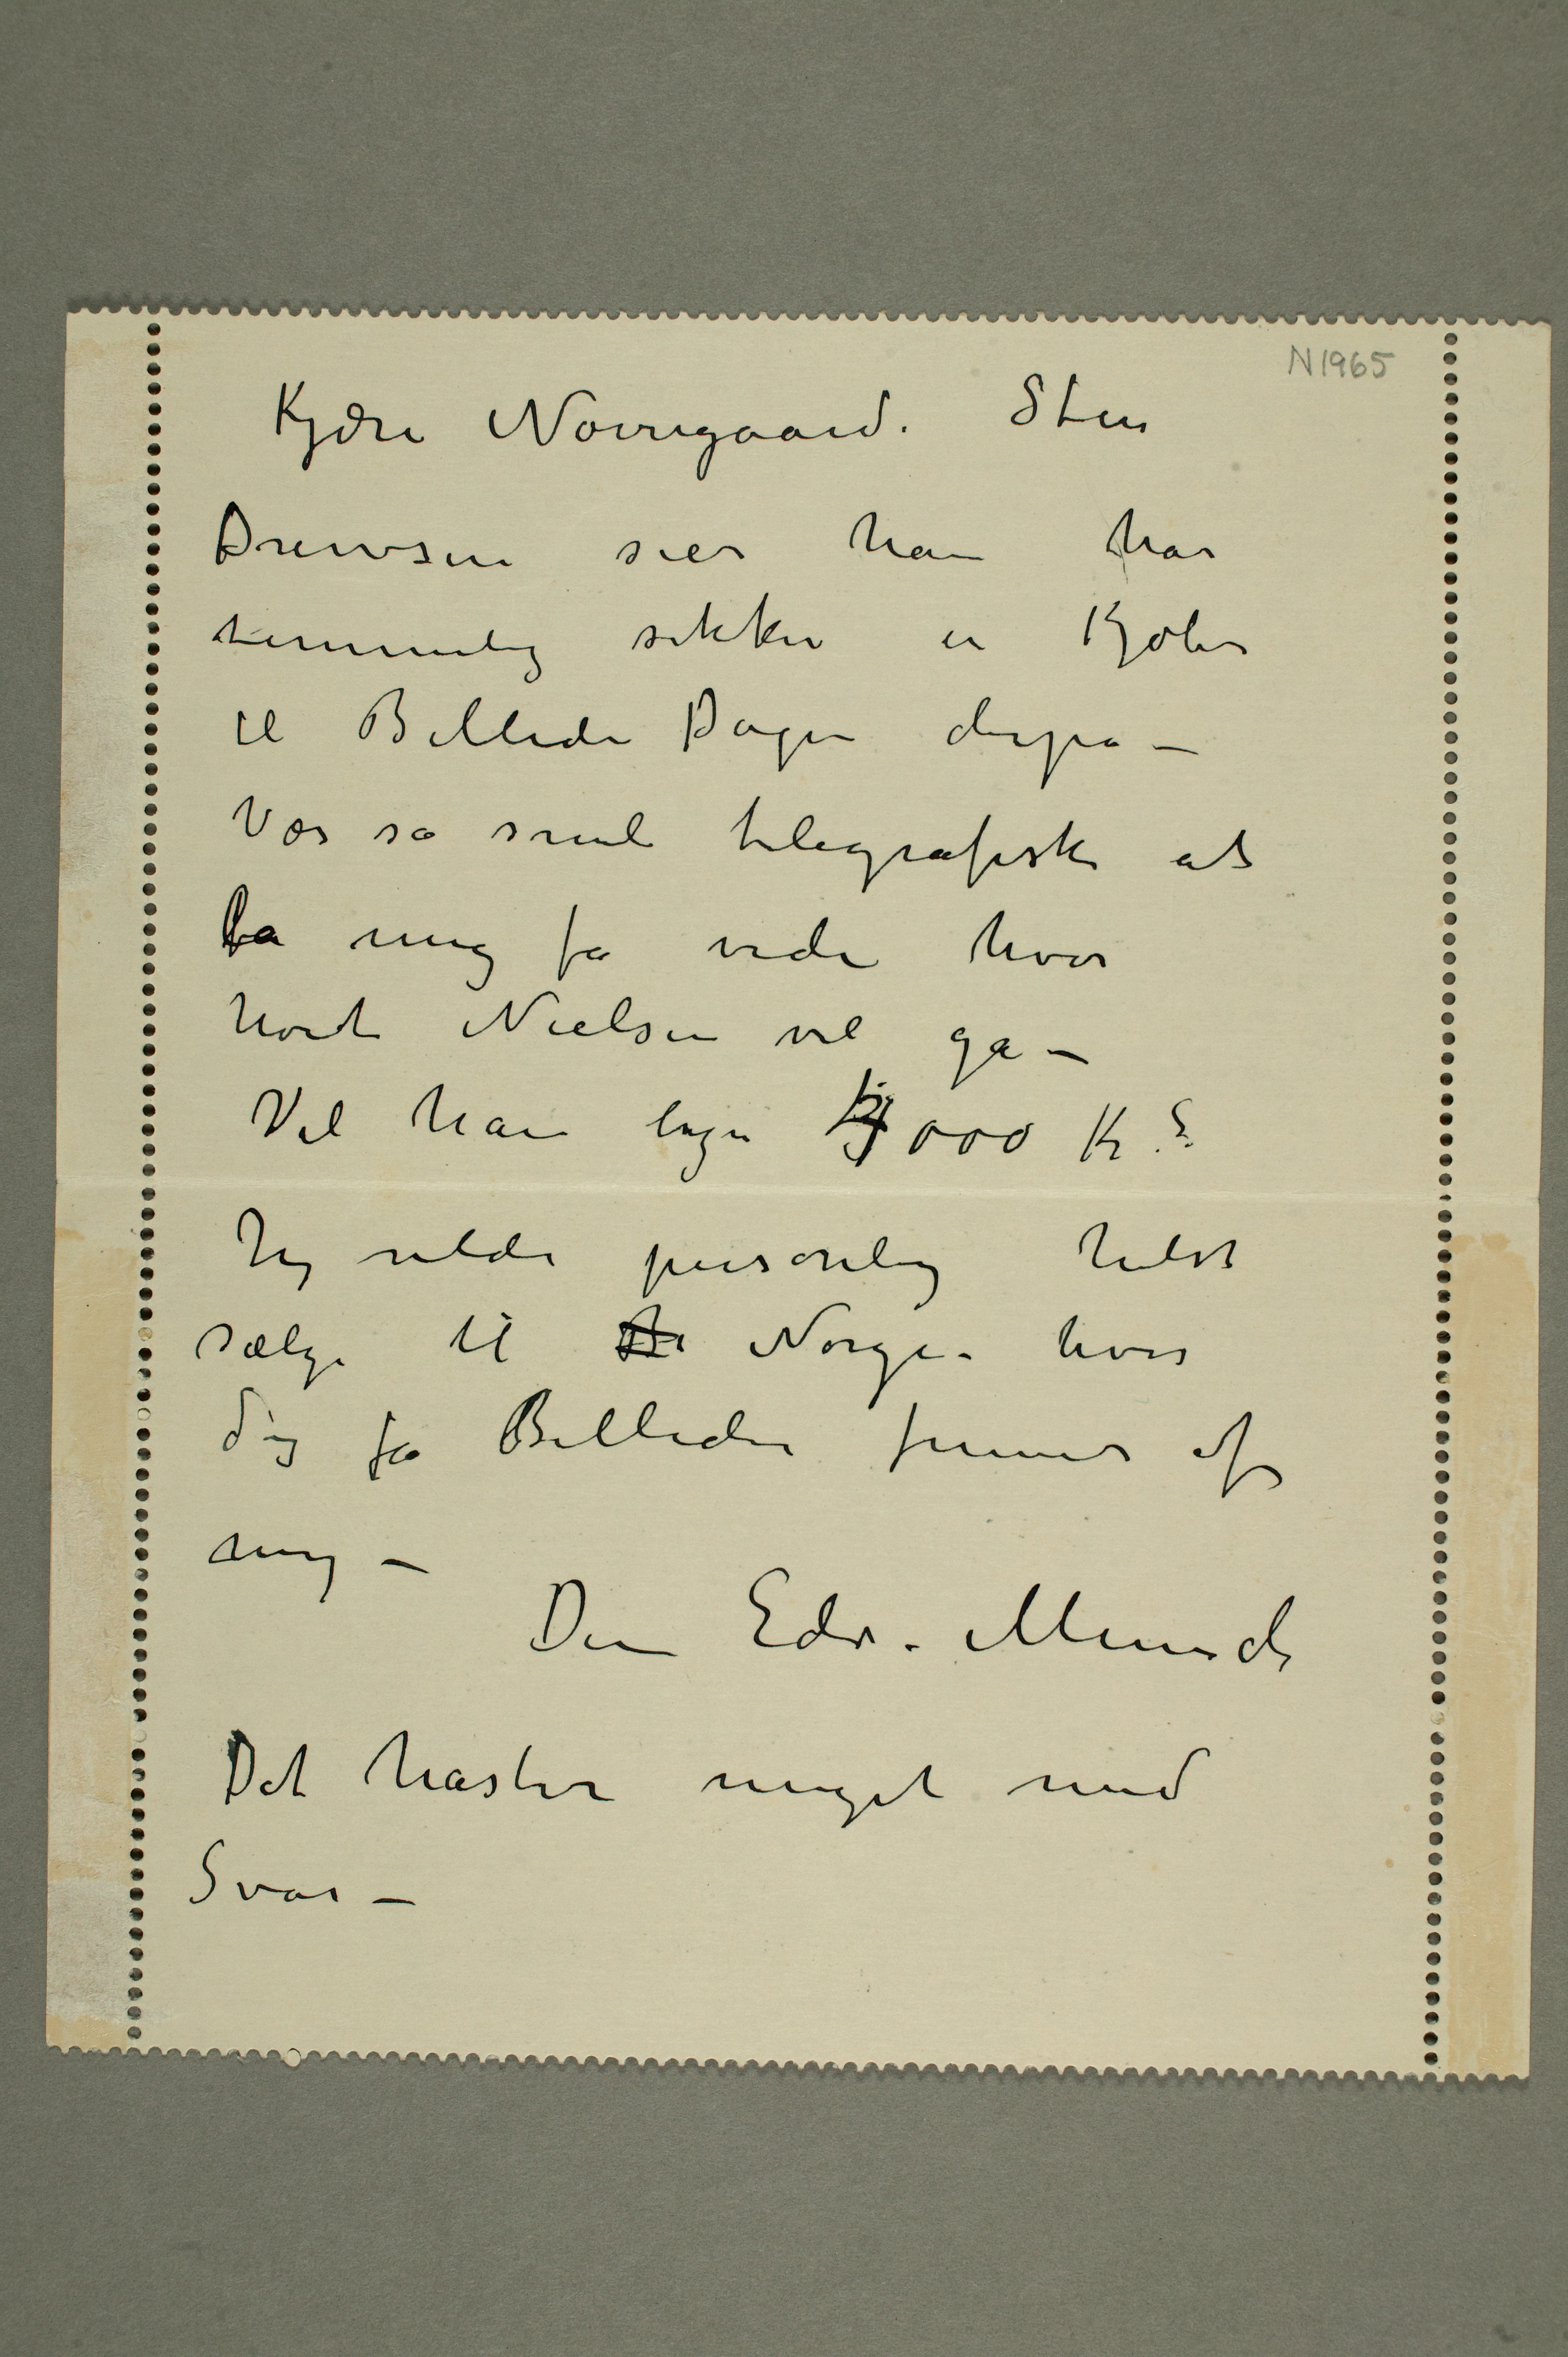 N1965
Kjære Nørregaard. Sten
Drewsen sier han har
temmelig sikker en Kjøber
til Billedet Dagen derpå –
Vær så snil telegrafisk at
la mig få vide hvor
hvidt Nielsen vil gå –
Vil han lægge 4000 Kr.?
Jeg vilde personlig helst
sælge til Norge – hvor
dog få Billeder finnes af
mig –
Din Edv. Munch
Det haster meget med
Svar –